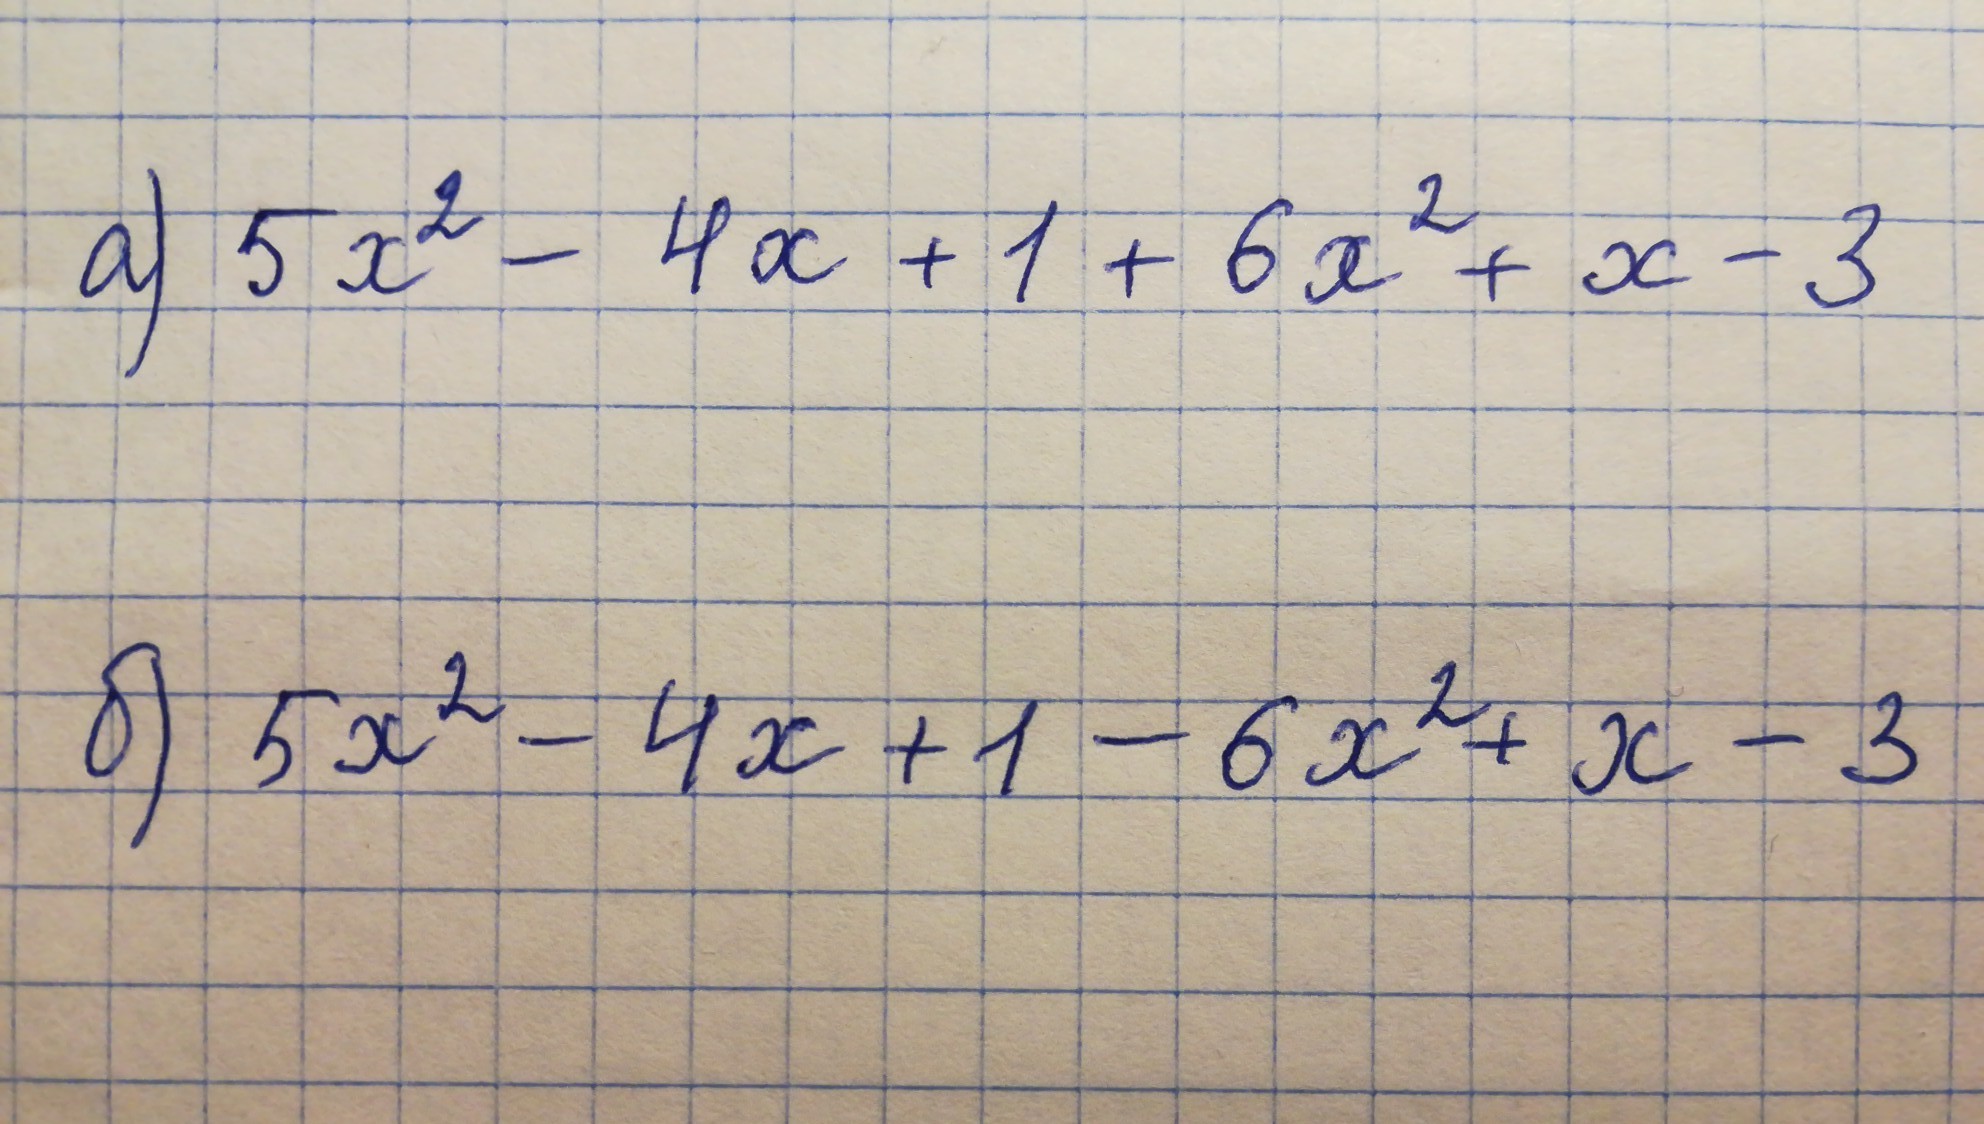 а) 5x² - 4x + 1 + 6x² + x - 3
б) 5x² - 4x + 1 - 6x² + x - 3